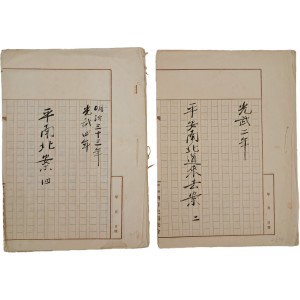 光武二年
平安南北道來去案 二
明治三十三年
光武四年
平南北案 四